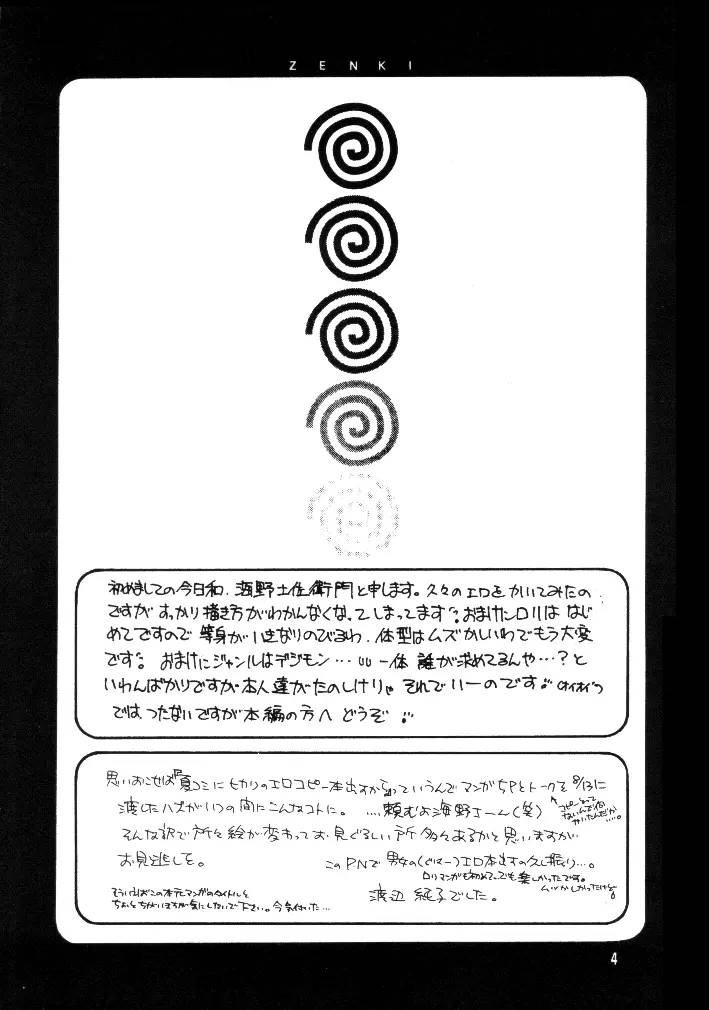 ZENKI
初めましての今日和、海野土佐衛門と申します。久々のエロをかいてみたの
ですが すっかり描き方がわかんなくなってしまってます。おまけにロリは はじ
めてですので 等身がいきなりのびるわ、体型はムズかしいわでもう大変
です。 おまけにジャンルはデジモン… 一体 誰が求めてるんや…?と
いわんばかりですが 本人達がたのしけりゃ それでいーのです
では、つたないですが 本編の方へ どうぞ
思いおこせば「夏コミにヒカリのエロコピー本出すから」っていうんでマンガ5Pとトークを 8/13に
渡したハズがいつの間にこんなコトに。 ....頼むよ海野さーん(笑)
そんな訳で所々絵が変わってお見ぐるしい所多々あるかと思いますが
お見逃しを。 このPNで 男女の エロ本出すの久し振り…。
ロリマンガも初めて、でも楽しかったです。
渡辺 純子でした。
そういえばこの本
ちょっとちがいますが気にしないで下さい。今気付いた…
4